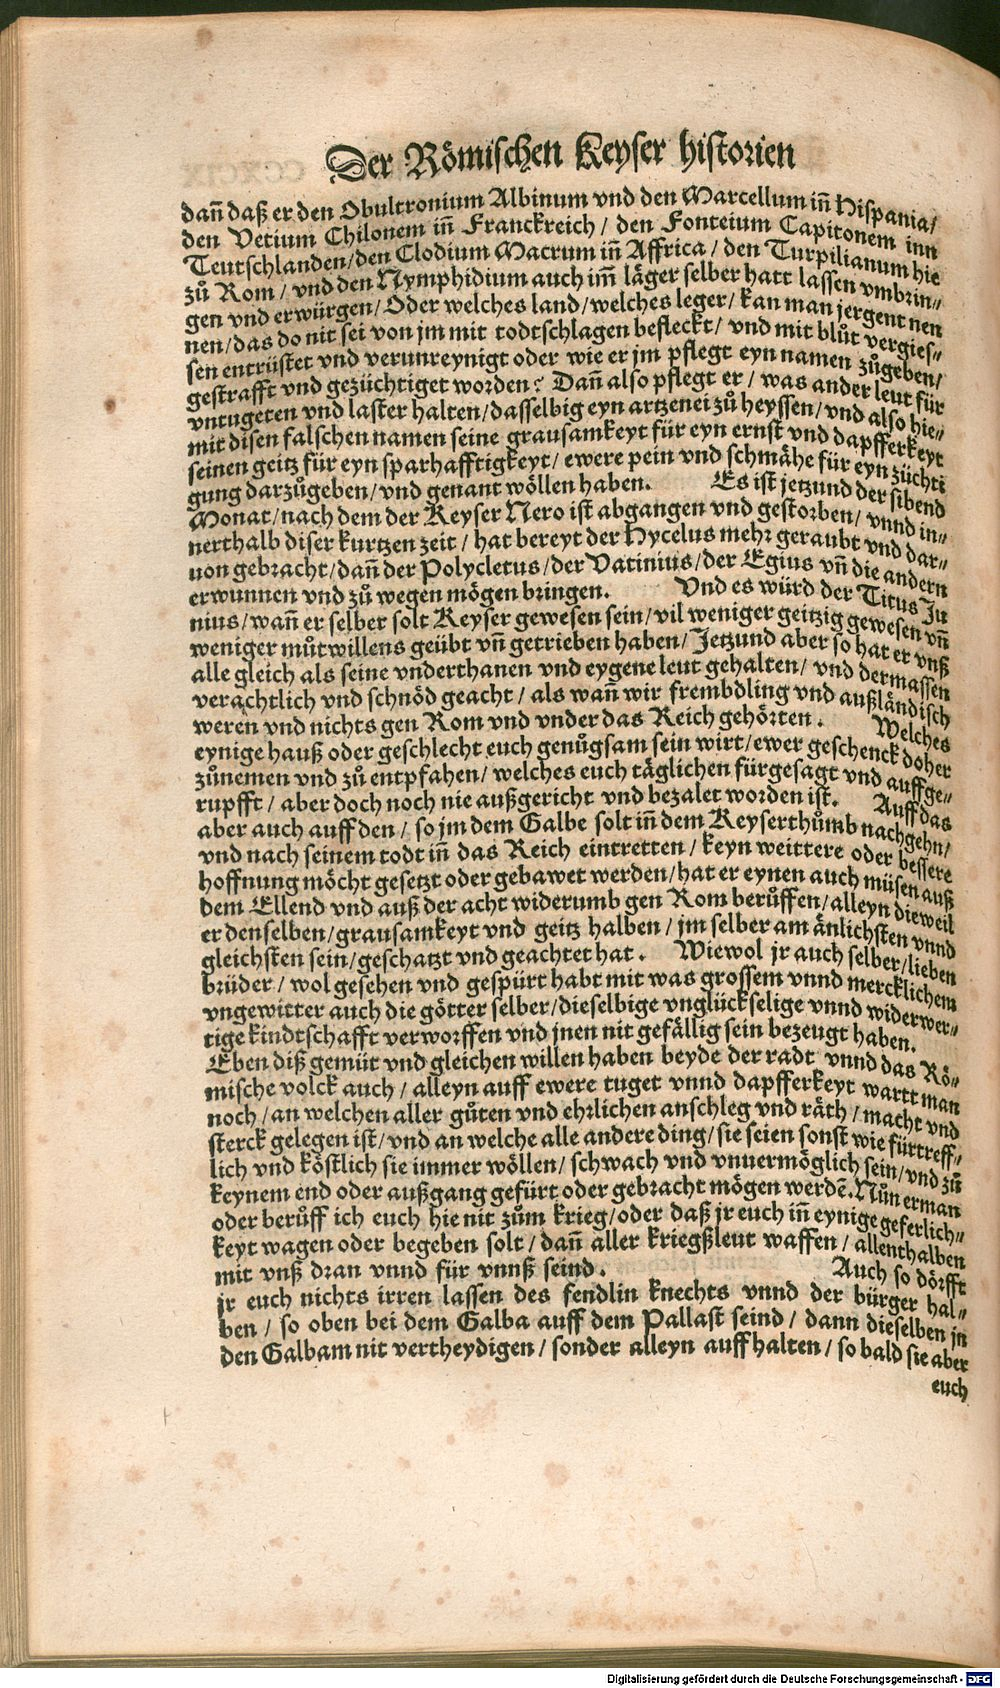 Der Römischen Keyser historien
dañ daß er den Obultronium Albinum vnd den Marcellum iñ Hispania/
den Vetium Chilonem iñ Franckreich / den Fonteium Capitonem inn
Teutschlanden/den Clodium Macrum iñ Affrica / den Turpilianum hie
zů Rom / vnd den Nymphidium auch im̃ läger selber hatt lassen vmbrin⸗
gen vnd erwürgen / Oder welches land / welches leger / kan man jergent nen
nen/das do nit sei von jm mit todtschlagen befleckt / vnd mit blůt vergies⸗
sen entrüstet vnd verunreynigt oder wie er jm pflegt eyn namen zůgeben/
gestrafft vnd gezüchtiget worden? Dañ also pflegt er / was ander leut für
vntugeten vnd laster halten/dasselbig eyn artzenei zů heyssen/vnd also hie⸗
mit disen falschen namen seine grausamkeyt für eyn ernst vnd dapfferkeyt
seinen geitz für eyn sparhafftigkeyt / ewere pein vnd schmähe für eyn züchti
gung darzůgeben/vnd genant wöllen haben. Es ist jetzund der sibend
Monat/nach dem der Keyser Nero ist abgangen vnd gestorben/ vnnd in⸗
nerthalb diser kurtzen zeit / hat bereyt der Hycelus mehr geraubt vnd dar⸗
uon gebracht/dañ der Polycletus/der Vatinius/der Egius vñ die andern
erwunnen vnd zů wegen mögen bringen. Vnd es würd der Titus Ju
nius/wañ er selber solt Keyser gewesen sein/vil weniger geitzig gewesen vñ
weniger můtwillens geübt vñ getrieben haben/Jetzund aber so hat er vnß
alle gleich als seine vnderthanen vnd eygene leut gehalten/ vnd dermassen
verachtlich vnd schnöd geacht / als wañ wir frembdling vnd außländisch
weren vnd nichts gen Rom vnd vnder das Reich gehörten. Welches
eynige hauß oder geschlecht euch genůgsam sein wirt/ewer geschenck doher
zůnemen vnd zů entpfahen / welches euch täglichen fürgesagt vnd auffge⸗
rupfft / aber doch noch nie außgericht vnd bezalet worden ist. Auff das
aber auch auff den / so jm dem Galbe solt iñ dem Keyserthůmb nachgehn/
vnd nach seinem todt iñ das Reich eintretten / keyn weittere oder bessere
hoffnung möcht gesetzt oder gebawet werden/hat er eynen auch müsen auß
dem Ellend vnd auß der acht widerumb gen Rom berůffen/alleyn dieweil
er denselben/grausamkeyt vnd geitz halben / jm selber am änlichsten vnnd
gleichsten sein/geschatzt vnd geachtet hat. Wiewol jr auch selber/lieben
brüder / wol gesehen vnd gespürt habt mit was grossem vnnd mercklichem
vngewitter auch die götter selber/dieselbige vnglückselige vnnd widerwer⸗
tige kindtschafft verworffen vnd jnen nit gefällig sein bezeugt haben.
Eben diß gemüt vnd gleichen willen haben beyde der radt vnnd das Rö⸗
mische volck auch / alleyn auff ewere tuget vnnd dapfferkeyt wartt man
noch / an welchen aller gůten vnd ehrlichen anschleg vnd räth / macht vnd
sterck gelegen ist/vnd an welche alle andere ding/sie seien sonst wie fürtreff⸗
lich vnd köstlich sie immer wöllen/ schwach vnd vnuermöglich sein/vnd zů
keynem end oder außgang gefürt oder gebracht mögen werdẽ. Nůn erman
oder berůff ich euch hie nit zům krieg/oder daß jr euch iñ eynige geferlich⸗
keyt wagen oder begeben solt / dañ aller kriegßleut waffen / allenthalben
mit vnß dran vnnd für vnnß seind. Auch so dörfft
jr euch nichts irren lassen des fendlin knechts vnnd der bürger hal⸗
ben / so oben bei dem Galba auff dem Pallast seind / dann dieselben jn
den Galbam nit vertheydigen / sonder alleyn auffhalten / so bald sie aber
euch
Digitalisierung gefördert durch die Deutsche Forschungsgemeinschaft - DFG